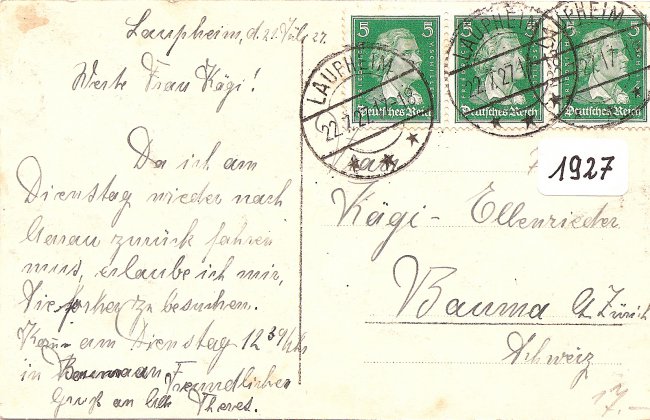 Laupheim, d. 21. Juli 27.
Werte Frau Kägi!
Da ich am
Dienstag wieder nach
zurück fahren
muss, erlaube ich mir,
Sie vorher zu besuchen.
am Dienstag 12 39 Uhr
in Bauma an. Freundlichen
Gruß an alle Theres.
5 5
5
5
FRIEDRICH VON SCHILLER
Deutsches Reich
Deutsches Reich
Deutsches Reich
LAUPHEIM
22.7.27.17-18
LAUPHEIM
22.7.27.17-18
LAUPHEIM
1927
Frau
Kägi-Ellenrieder
Bauma Ct. Zürich
Schweiz
17.-